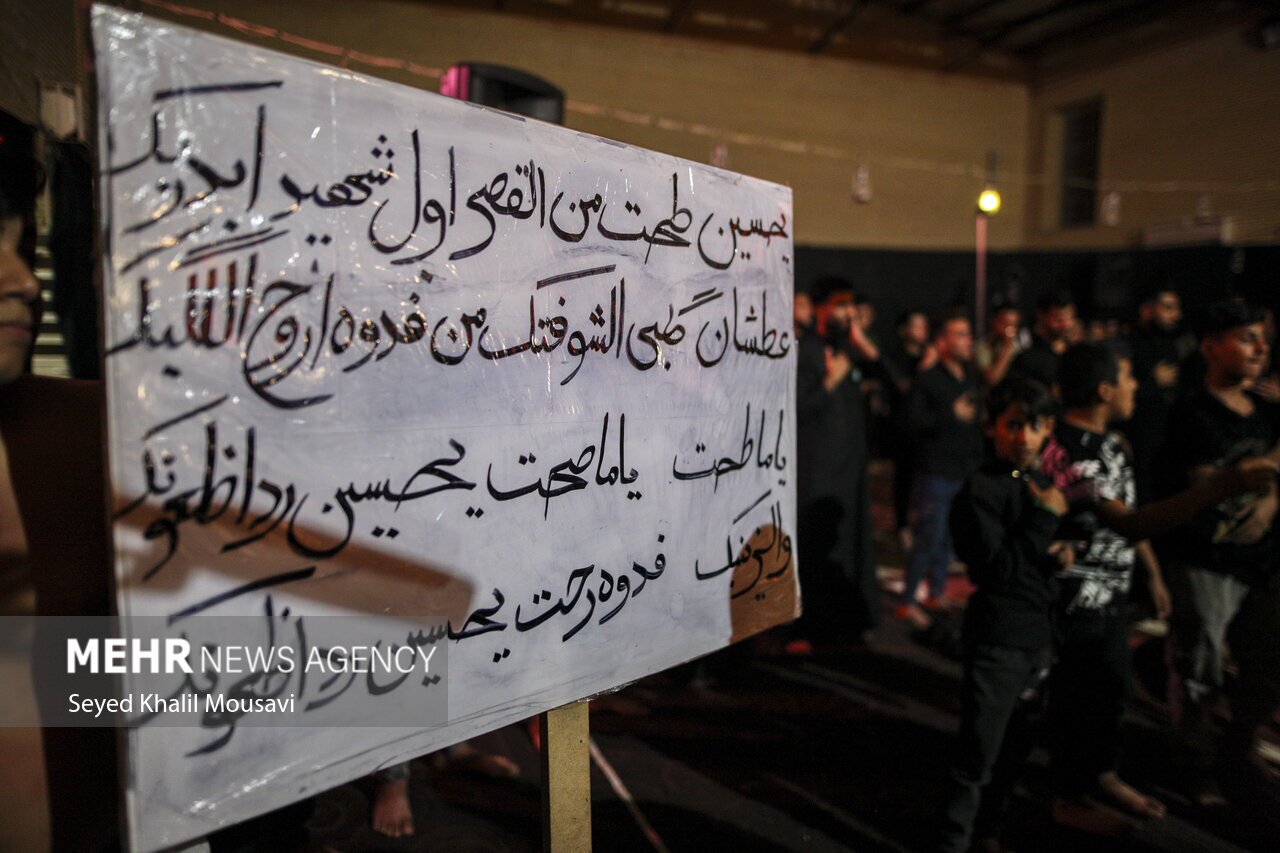 يحسين طحت من القصر اول شهيد ابدربك
عطشان گلبي الشوفتك من فدوه اروح اللگلبك
ياماطحت ياماصحت يحسين رد اظعونك
والزينب فدوه رحت يحسين رد اظعونك
MEHR NEWS AGENCY
Seyed Khalil Mousavi